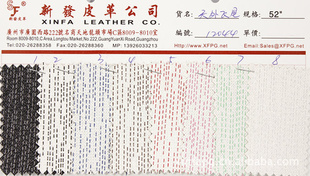 新發皮革公司
XINFA LEATHER CO.
廣州市廣園西路222號名商天地龍頭市場C區8009-8010室
Room 8009-8010,C Area,Longtou Market,No.222,GuangYuanXi Road,Guangzhou
Tel: 020-26288358 Fax: 020-26288360 MP: 13926033213
貨名: 規格: 52"
編號: 12044 單價:
Http://www.XFPG.net Email:Sales@XFPG.net
2 3 4 5 6 7 8